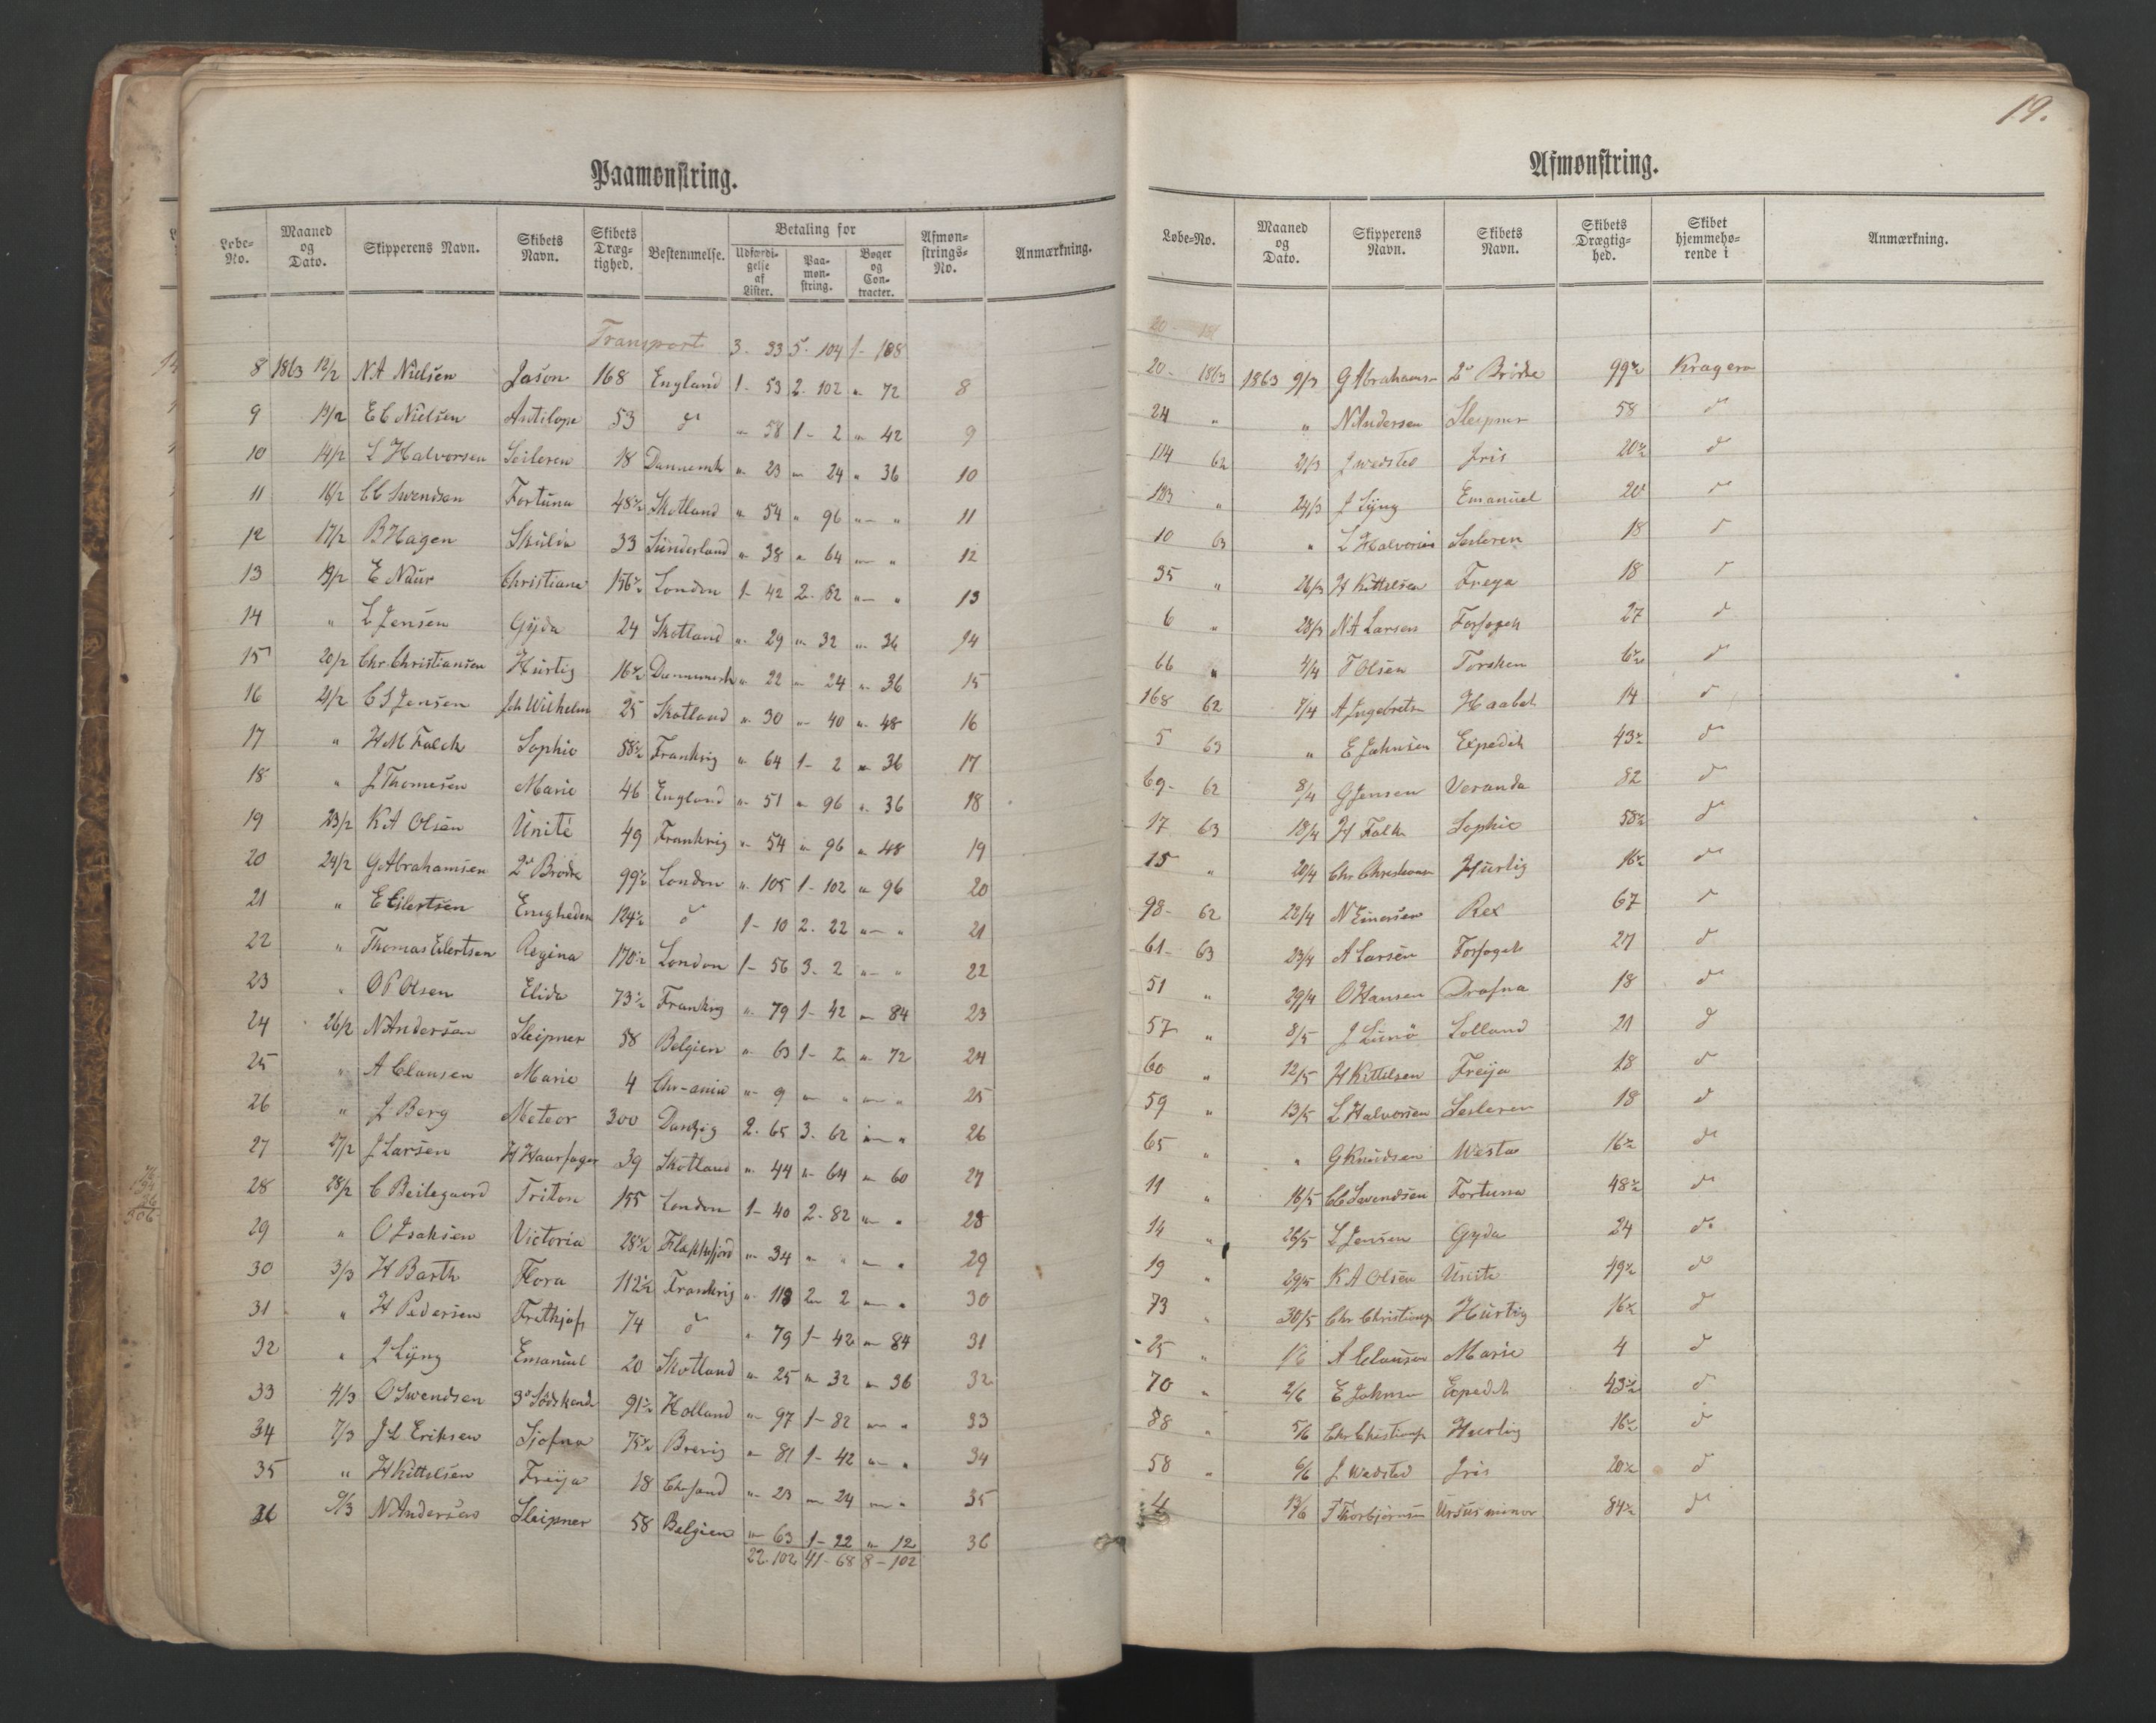 Paamønstring.
Løbe-No. Maaned og Dato. Skipperens Navn. Skibets Navn. Skibets Dræg-tighed. Bestemmelse. Betaling for Udfærdi-gelse af Lister. Paa-møn-string. Bøger og Con-tracter. Afmøn-strings-No. Anmærkning.
Transport 3. 33 5. 104 1- 108
8 1863 12/2 NA Nielsen Jason 168 England 1- 53 2. 102 " 72 8
9 13/2 EC Nielsen Antilope 53 do " 58 1- 2 " 42 9
10 14/2 L Halvorsen Seileren 18 Dannemk " 23 " 24 " 36 10
11 16/2 CC Svendsen Fortuna 48½ Skotland " 54 " 96 " " 11
12 17/2 B Hagen Skulda 33 Sunderland " 38 " 64 " " 12
13 19/2 E Naur Christiane 156½ London 1- 42 2. 82 " " 13
14 " L Jensen Gyda 24 Skotland " 29 " 32 " 36 14
15 20/2 Chr. Christiansen Hurtig 16½ Dannemark " 22 " 24 " 36 15
16 21/2 C S Jensen Joh Wilhelm 25 Skotland " 30 " 40 " 48 16
17 " HM Falck Sophie 58½ Frankrig " 64 1- 2 " 36 17
18 " J Thomesen Marie 46 England " 51 " 96 " 36 18
19 23/2 KA Olsen Unité 49 Frankrig " 54 " 96 " 48 19
20 24/2 G Abrahamsen 2de Brødre 99½ London " 105 1- 102 " 96 20
21 " E Eilertsen Enigheden 124½ do 1- 10 2. 22 " " 21
22 " Thomas Eilertsen Regina 170½ London 1- 56 3. 2 " " 22
23 " OP Olsen Elida 73½ Frankrig " 79 1- 42 " 84 23
24 26/2 N Andersen Sleipner 58 Belgien " 63 1- 2 " 72 24
25 " A Clausen Marie 4 Chr-ania " 9 " " " " 25
26 " J. Berg Meteor 300 Danzig 2. 65 3. 62 " " 26
27 27/2 J Larsen H Haarfager 39 Skotland " 44 " 64 " 60 27
28 28/2 C Beilegaard Triton 155 London 1- 40 2- 82 " " 28
29 " O Isaksen Victoria 28½ " 34 " " " " 29
30 3/3 H Barth Flora 112½ Frankrig " 118 2 2 " " 30
31 " H Pedersen Frithjof 74 do " 79 1- 42 " 84 31
32 " J Lyng Emanuel 20 Skotland " 25 " 32 " 36 32
33 4/3 O Svendsen 3de Sødskende 91½ Holland " 97 1- 82 " " 33
34 7/3 J L Eriksen Sjofna 75½ Brevig " 81 1- 42 " " 34
35 " H Kittelsen Freija 18 Chrsand " 23 " 24 " " 35
36 9/3 N Andersen Sleipner 58 Belgien " 63 1- 22 " 12 36
22. 102 41- 68 8- 102
19.
Afmønstring.
Løbe-No. Maaned og Dato. Skipperens Navn. Skibets Navn. Skibets Drægtig-hed. Skibet hjemmehø-rende i Anmærkning.
20- 1863 1863 9/3 G Abrahamsn 2de Brødre 99½ Kragerø
24 " " N Andersen Sleipner 58 do
114 62 21/3 J Wedsted Iris 20½ do
183 " 24/3 J Lyng Emanuel 20 do
10 63 " L Halvorsen Seileren 18 do
35 " 26/3 H Kittelsen Freya 18 do
6 " 28/3 NA Larsen Forsøget 27 do
66 " 4/4 T Olsen Torsken 6½ do
168 62 7/4 A Ingebretsn Haabet 14 do
5 63 " E Johnsen Expedit 43½ do
69- 62 8/4 G Jensen Veranda 82 do
17 63 18/4 H Falk Sophie 58½ do
15 " 20/4 Chr Christiansn Hurtig 16½ do
98- 62 22/4 N Einersen Rex 67 do
61- 63 23/4 A Larsen Forsøget 27 do
51 " 29/4 O Hansen Drafna 18 do
57 " 8/5 J Lunø Lolland 21 do
60 " 12/5 H Kittelsen Freija 18 do
59 " 13/5 L Halvorsen Seileren 18 do
65 " " G Knudsen Westa 16½ do
11 " 16/5 CC Svendsen Fortuna 48½ do
14 " 26/5 L Jensen Gyda 24 do
19 " 29/5 K A Olsen Unite 49½ do
73 " 30/5 Chr Christiansn Hurtig 16½ do
25 " 1/6 A Clausen Marie 4 do
70 " 2/6 E Johnsn Expedit 43½ do
88 " 5/6 Chr Christiansn Hurtig 16½ do
58 " 6/6 J. Wedsted Iris 20½ do
4 13/6 T Thorbjørnsen Ursus minor 84½ do